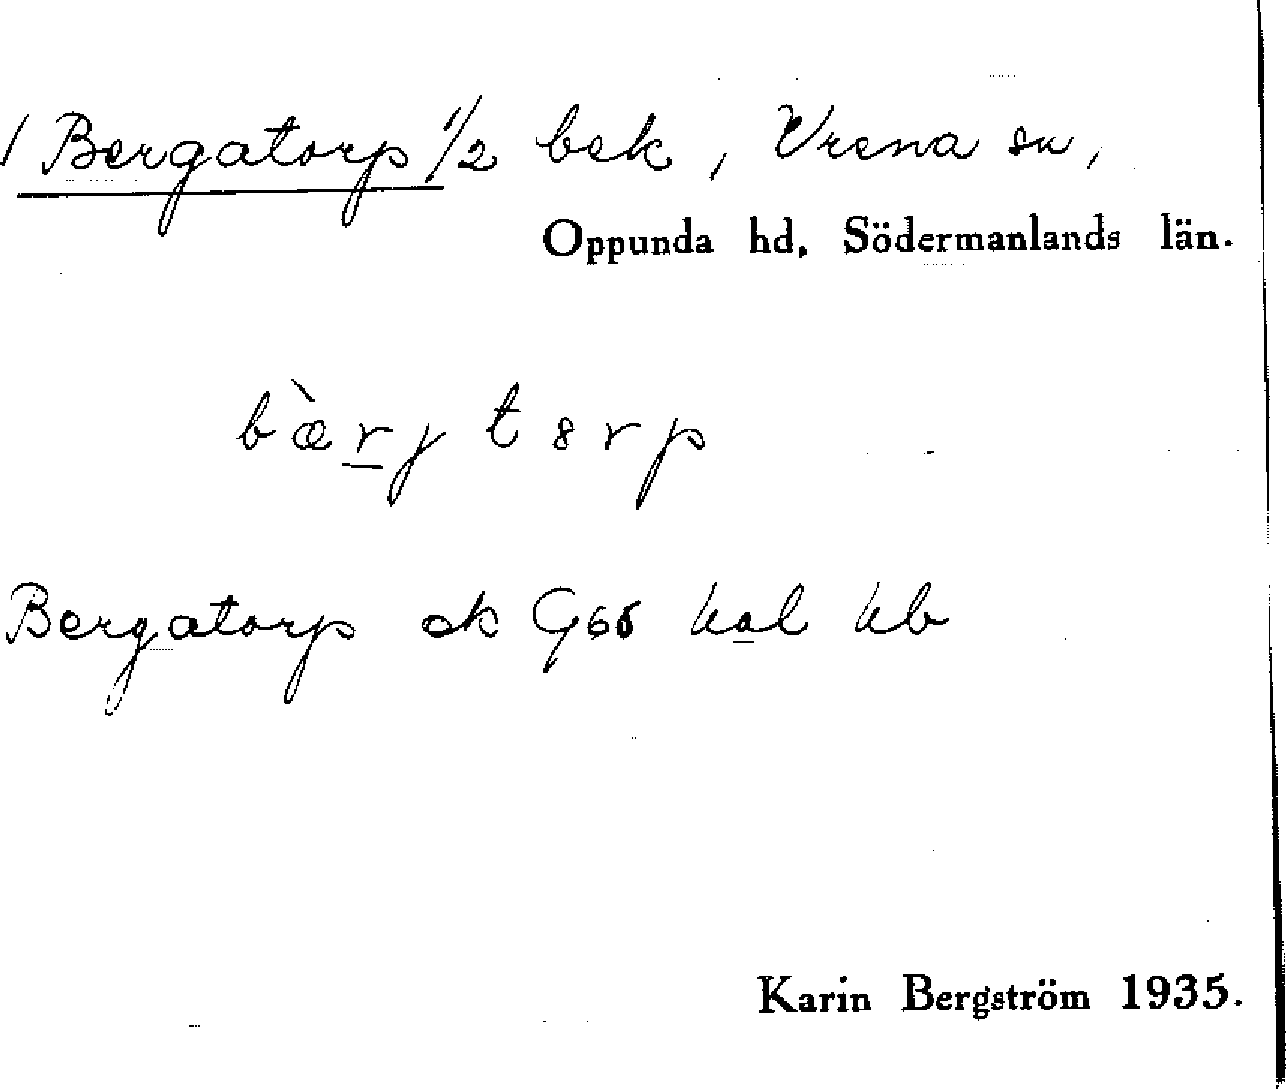 / Bergatorp 1/2 bek, Vrena sn,
Oppunda hd, Södermanlands län.
bæ̀rj t8rp
Bergatorp ek G66 hal hb
Karin Bergström 1935.